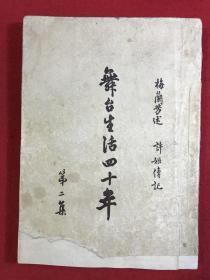 梅蘭芳述 許姬傳記
舞台生活四十年
第二集